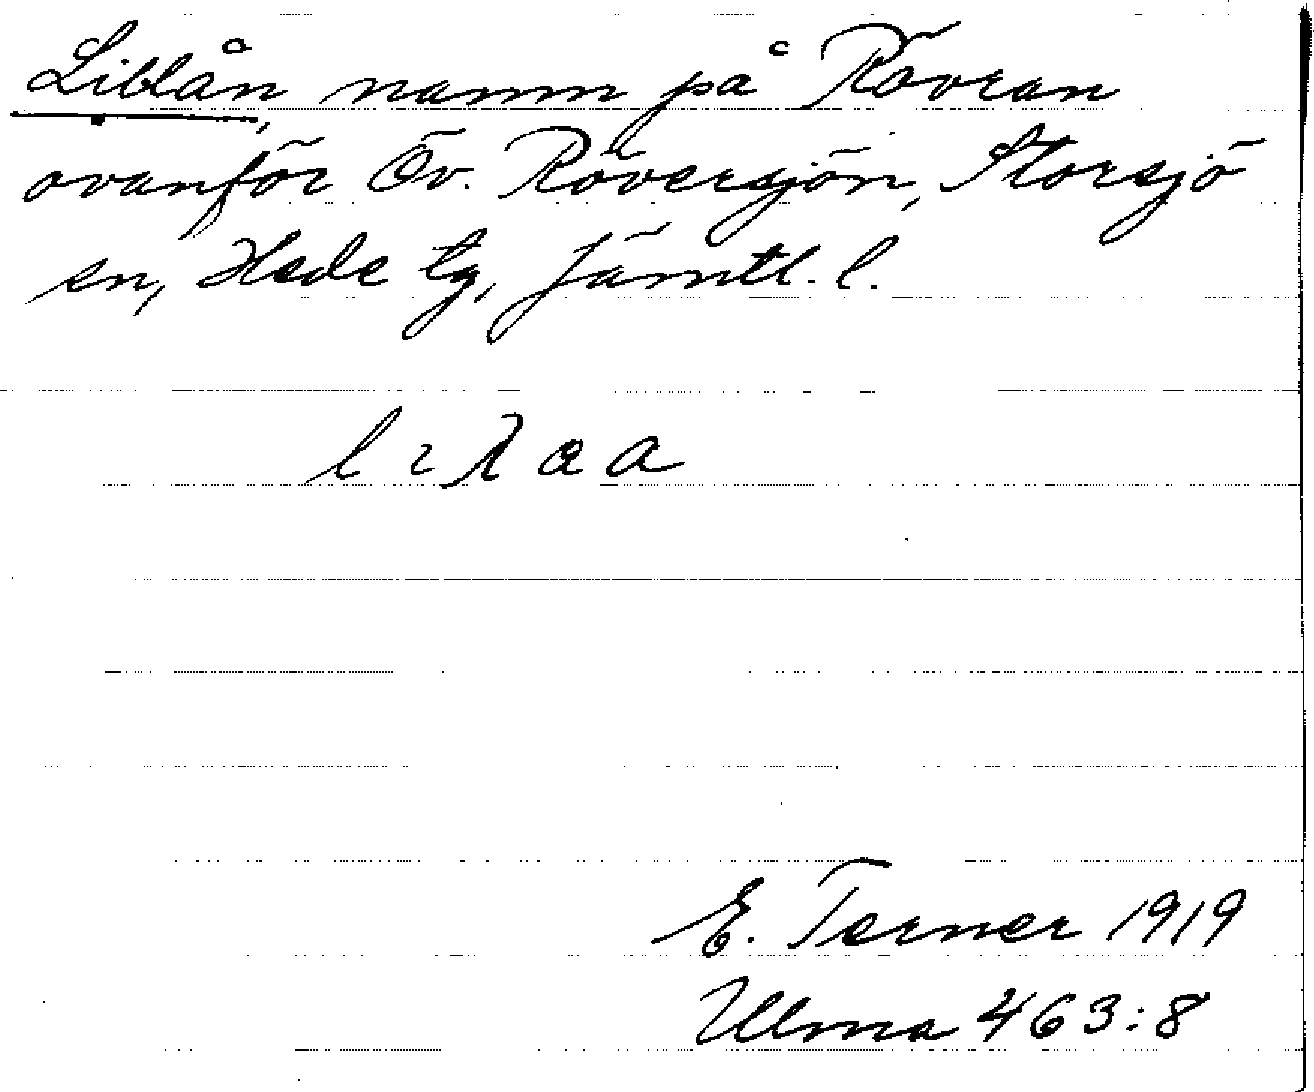 Liblån, namn på Rövran
ovanför Öv. Röversjön, Storsjö
sn, Hede tg, Jämtl. l.
E. Terner 1919
Ulma 463:8